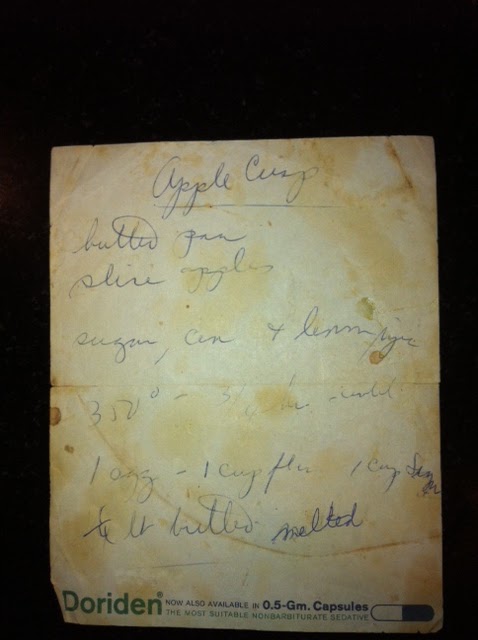 Apple Crisp
butted pan
slice apples
sugar, cin + lemon juice
350° - 3/4 hr -
1 egg - 1 cup flr 1 cup Sugar
butted melted
Doriden® NOW ALSO AVAILABLE IN 0.5-Gm. Capsules
THE MOST SUITABLE NONBARBITURATE SEDATIVE